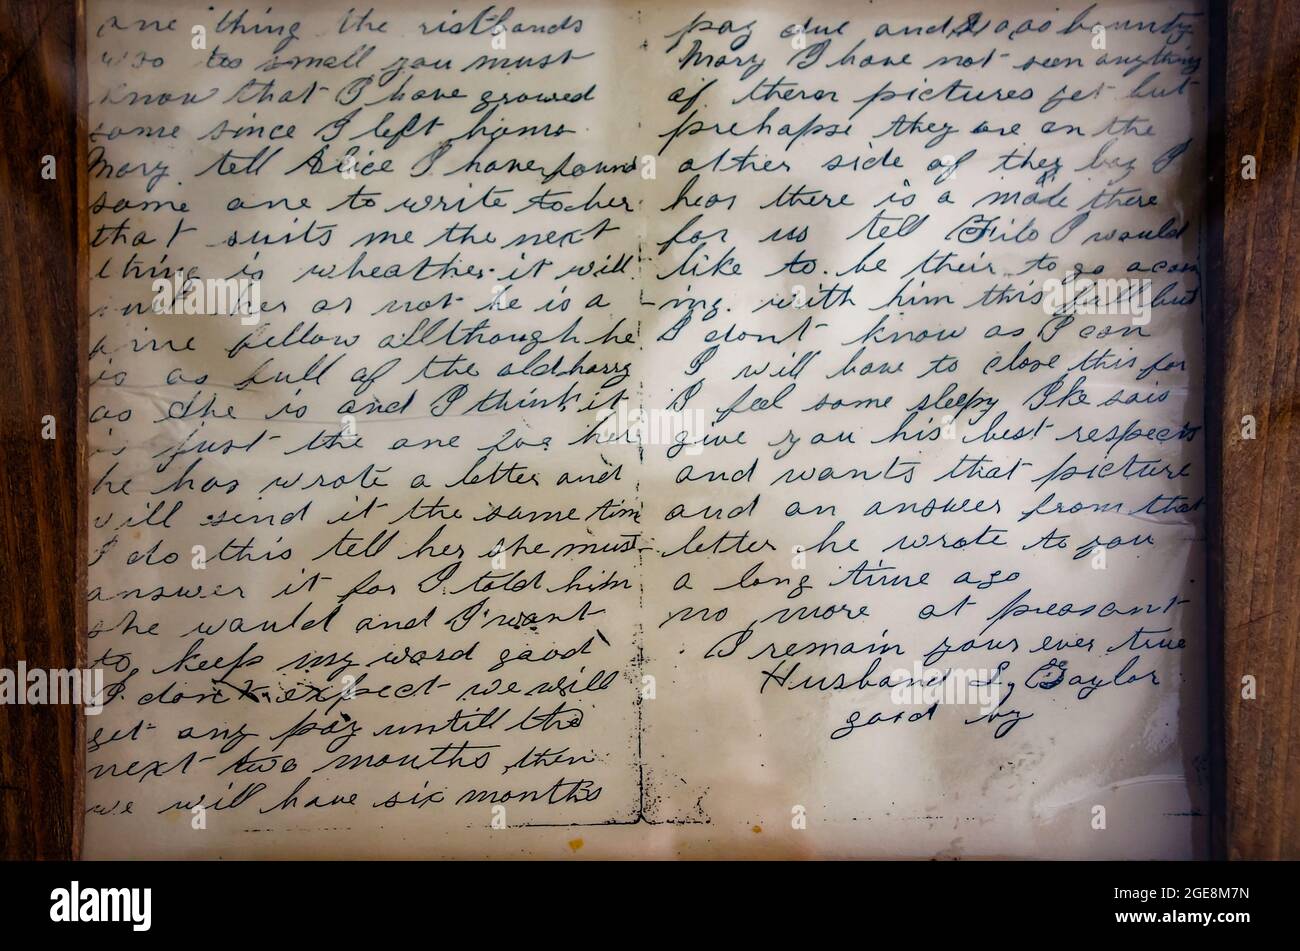 one thing the ristbands
was too small you must
know that I have growed
some since I left home
Mary tell Alice I have found
some one to write to her
that suits me the next
thing is wheather it will
suit her or not he is a
fine fellow allthough he
is as full of the old harry
as she is and I think it
is just the one for her
he has wrote a letter and
will send it the same time
I do this tell her she must
answer it for I told him
she would and I want
to keep my word good
I don't expect we will
get any pay untill the
next two months, then
we will have six months
pay due and bounty
Mary I have not seen anything
of them pictures yet but
prehapse they are on the
other side of the bay I
hear there is a male there
for us tell Filo I would
like to be their to go acoon
ing with him this fall but
I dont know as I can
I will have to close this for
I feel some sleepy Ike sais
give you his best respects
and wants that picture
and an answer from that
letter he wrote to you
a long time ago
no more at preasant
I remain your ever true
Husband L, Gaylor
good by
alamy
Image ID: 2GE8M7N
www.alamy.com